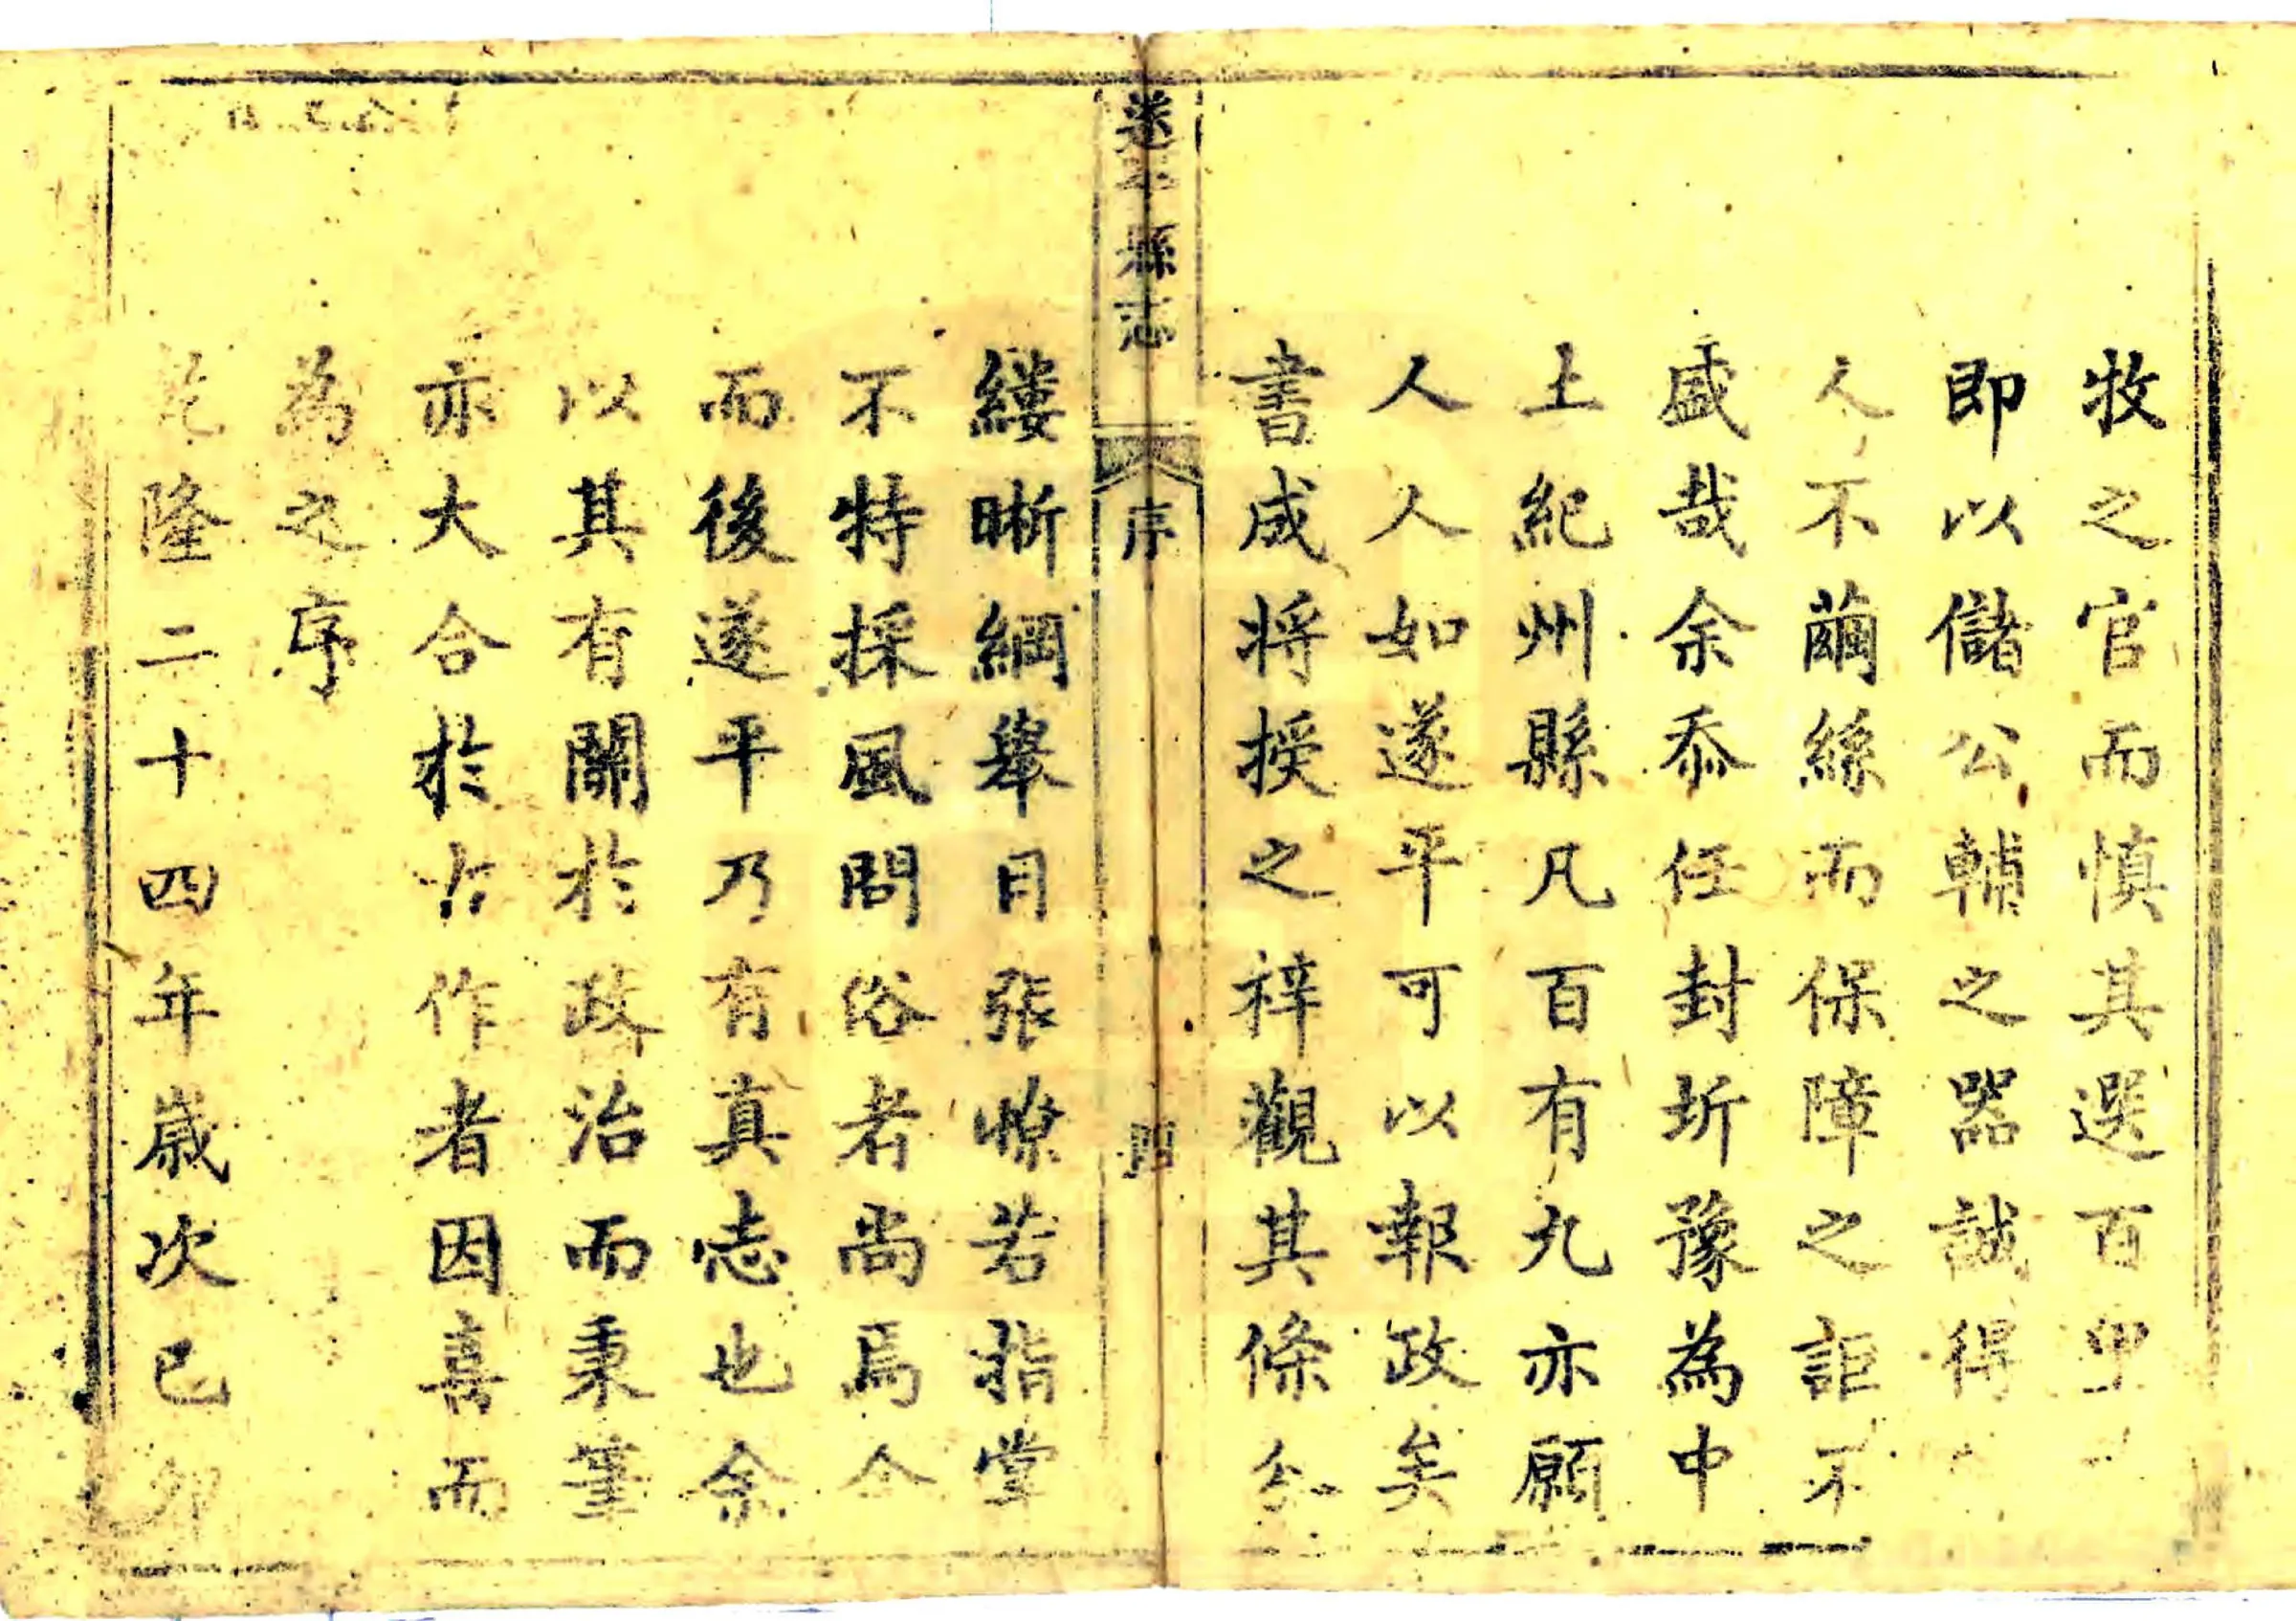 牧之官而慎其選百
即以儲公輔之器誠得
人不繭絲而保障之詎不
盛哉余忝任封圻豫為中
土紀州縣凡百有九亦願
人人如遂平可以報政矣
書成將授之梓觀其條
遂平縣志
序
四
縷晰綱舉目張燎若指掌
不特採風問俗者尚焉今
而後遂平乃有真志也余
以其有關於政治而秉筆
亦大合於古作者因喜而
為之序
乾隆二十四年歲次己卯